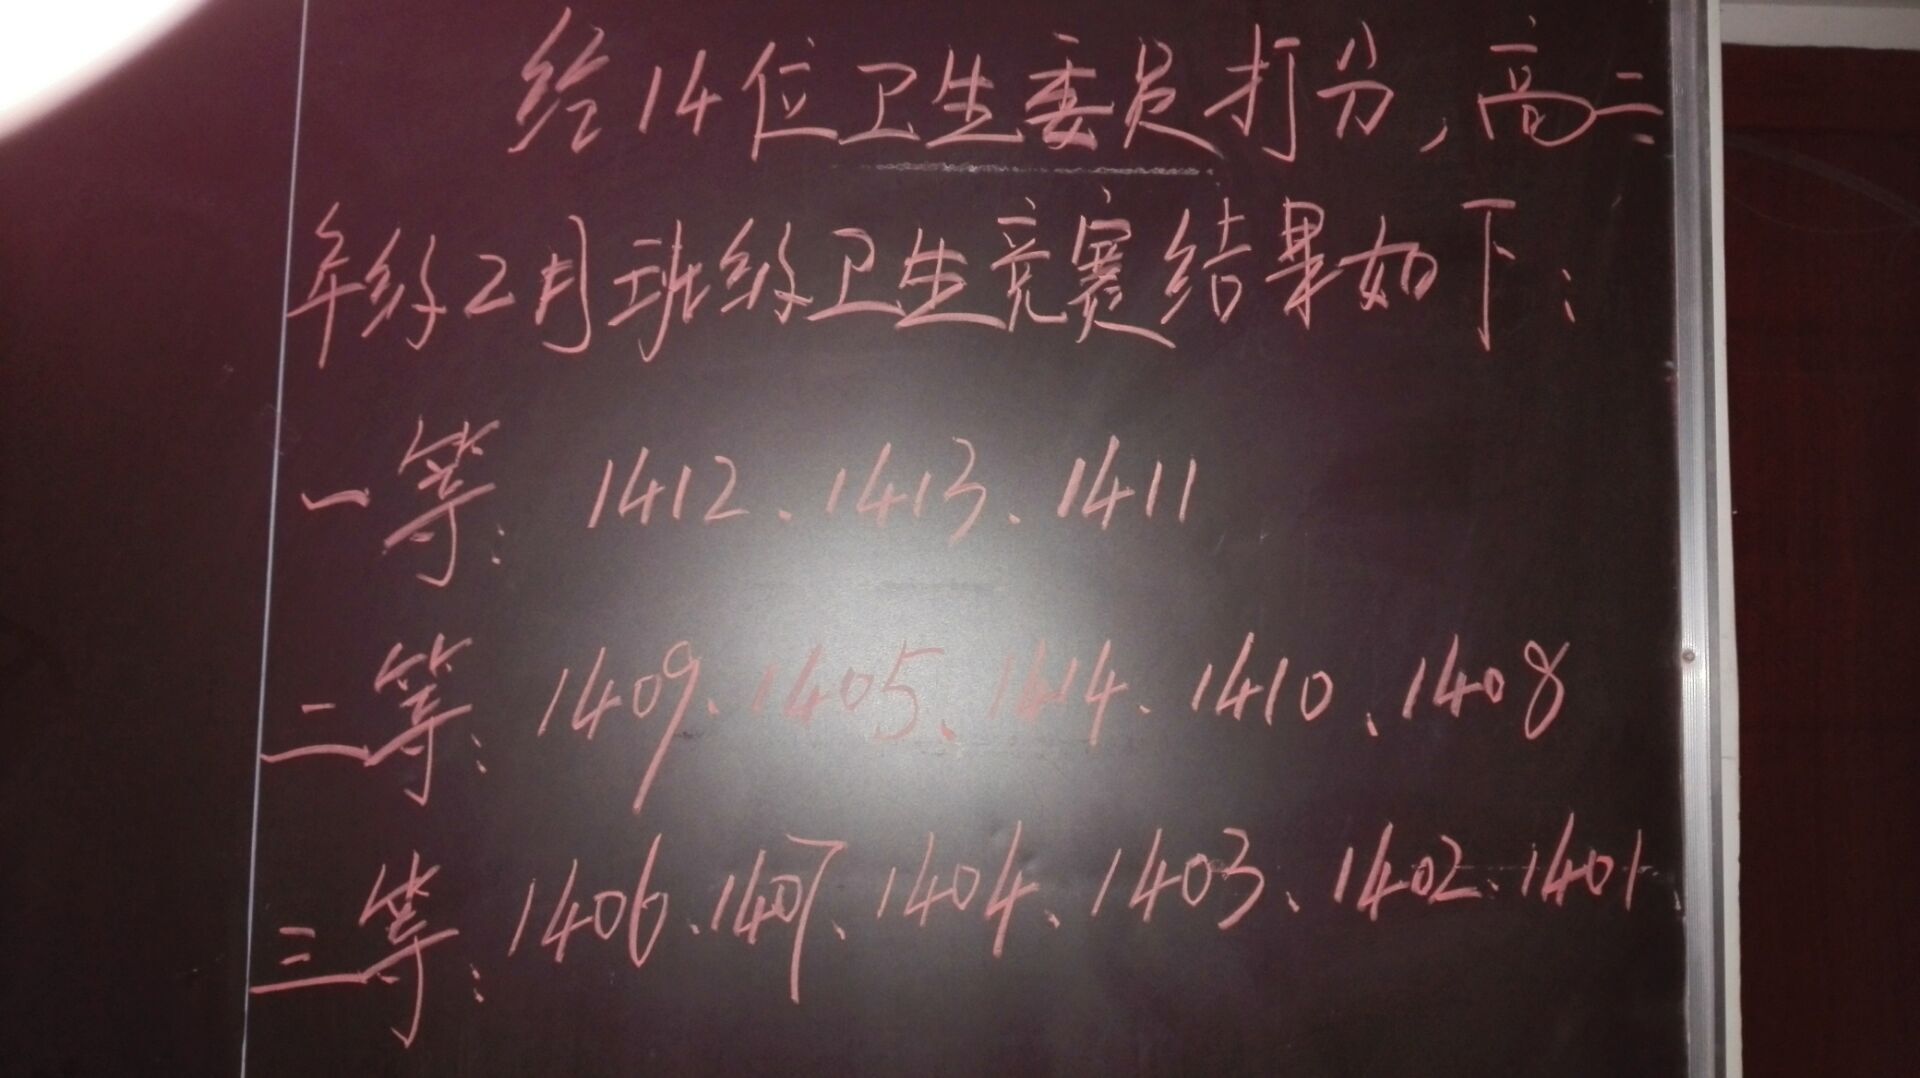 给14位卫生委员打分,高二
年级2月班级卫生竞赛结果如下:
一等:1412、1413、1411
二等:1409、1405、1414、1410、1408
三等:1406、1407、1404、1403、1402、1401